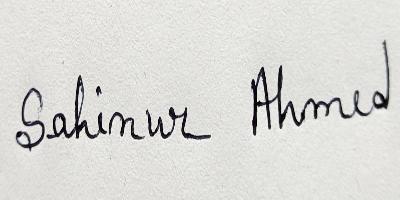 Sahinur Ahmed